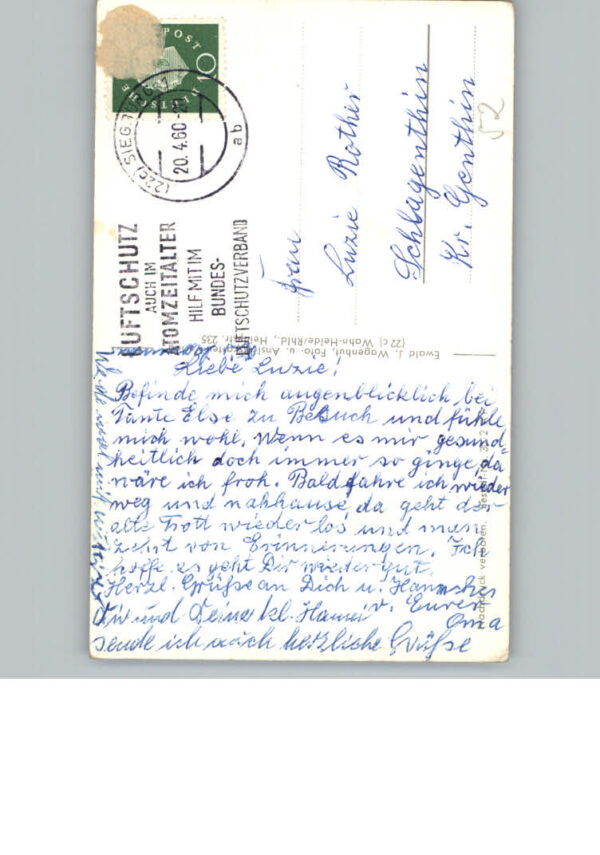 DEUTSCHE
POST
10
(22c) SIEGBURG 1
20.4.60
ab
LUFTSCHUTZ
AUCH IM
ATOMZEITALTER
HILF MIT IM
BUNDES-
LUFTSCHUTZVERBAND
Frau
Luzie Rother
Schlagenthin
Kr. Genthin
52
Ewald J. Wagenhut, Foto- u. Ansichtskarten
(22c) Wahn-Heide/Rhld., Heidestr. 235
Liebe Luzie!
Befinde mich augenblicklich bei
Tante Else zu Besuch und fühle
mich wohl. Wenn es mir gesund-
heitlich doch immer so ginge da
wäre ich froh. Bald fahre ich wieder
weg und nahhause, da geht der
alte Trott wieder los und man
zehrt von Erinnerungen. Ich
hoffe es geht Dir wieder gut.
Herzl. Grüße an Dich u.
v. Eurer
Oma
Dir und Deine kl.
sende ich auch herzliche Grüße
Nachdruck verboten.